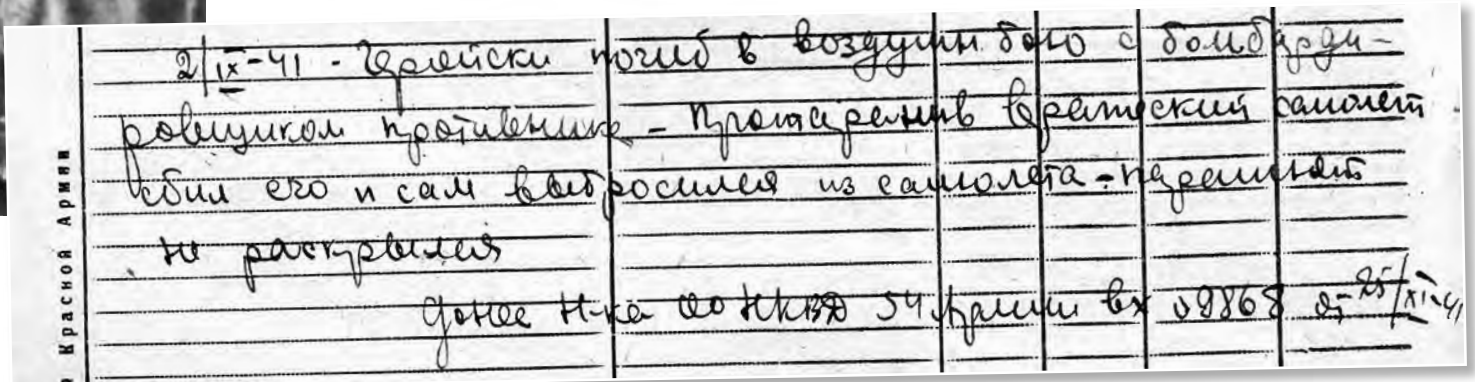 2/IX-41 - Геройски погиб в воздушн бою с бомбарди-
ровщиком противника - Протаранив вражеский самолет
сбил его и сам выбросился из самолета - парашют
не раскрылся
Донес Н-ка ОО НКВД 54 Армии вх 09868 от 25/XI-41
Красной Армии